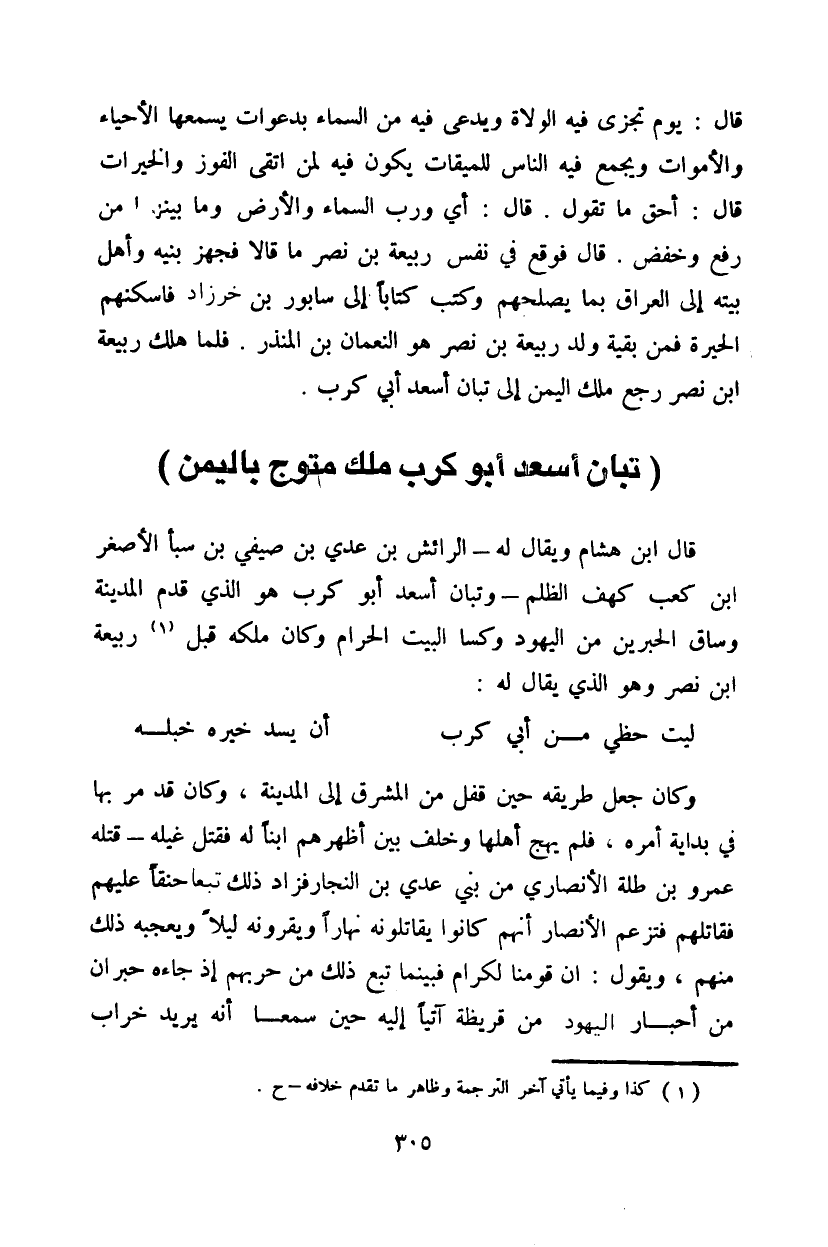 قال : يوم تجزى فيه الولاة ويدعى فيه من السماء بدعوات يسمعها الأحياء
والأموات ويجمع فيه الناس للميقات يكون فيه لمن اتقى الفوز والخيرات
قال : أحق ما تقول . قال : أي ورب السماء والأرض وما من
رفع وخفض . قال فوقع في نفس ربيعة بن نصر ما قالا فجهز بنيه وأهل
بيته إلى العراق بما يصلحهم وكتب كتاباً إلى سابور بن خرزاد فاسكنهم
الحيرة فمن بقية ولد ربيعة بن نصر هو النعمان بن المنذر . فلما هلك ربيعة
ابن نصر رجع ملك اليمن إلى تبان أسعد أبي كرب .
( تبان أسعد أبو كرب ملك متوج باليمن )
قال ابن هشام ويقال له – الرائش بن عدي بن صيفي بن سبأ الأصغر
ابن كعب كهف الظلم – وتبان أسعد أبو كرب هو الذي قدم المدينة
وساق الحبرين من اليهود وكسا البيت الحرام وكان ملكه قبل (١) ربيعة
ابن نصر وهو الذي يقال له :
ليت حظي مـــن أبي كرب أن يسد خيره خبلـــه
وكان جعل طريقه حين قفل من المشرق إلى المدينة ، وكان قد مر بها
في بداية أمره ، فلم يهج أهلها وخلف بين أظهرهم ابناً له فقتل غيله – قتله
عمرو بن طلة الأنصاري من بني عدي بن النجار فزاد ذلك تبعا حنقاً عليهم
فقاتلهم فتزعم الأنصار أنهم كانوا يقاتلونه نهاراً ويقرونه ليلاً ويعجبه ذلك
منهم ، ويقول : ان قومنا لكرام فبينما تبع ذلك من حربهم إذ جاءه حبران
من أحبـــار اليهود من قريظة آتياً إليه حين سمعـــا أنه يريد خراب
( ١ ) كذا وفيما يأتي آخر الترجمة وظاهر ما تقدم خلافه – ح .
٣٠٥